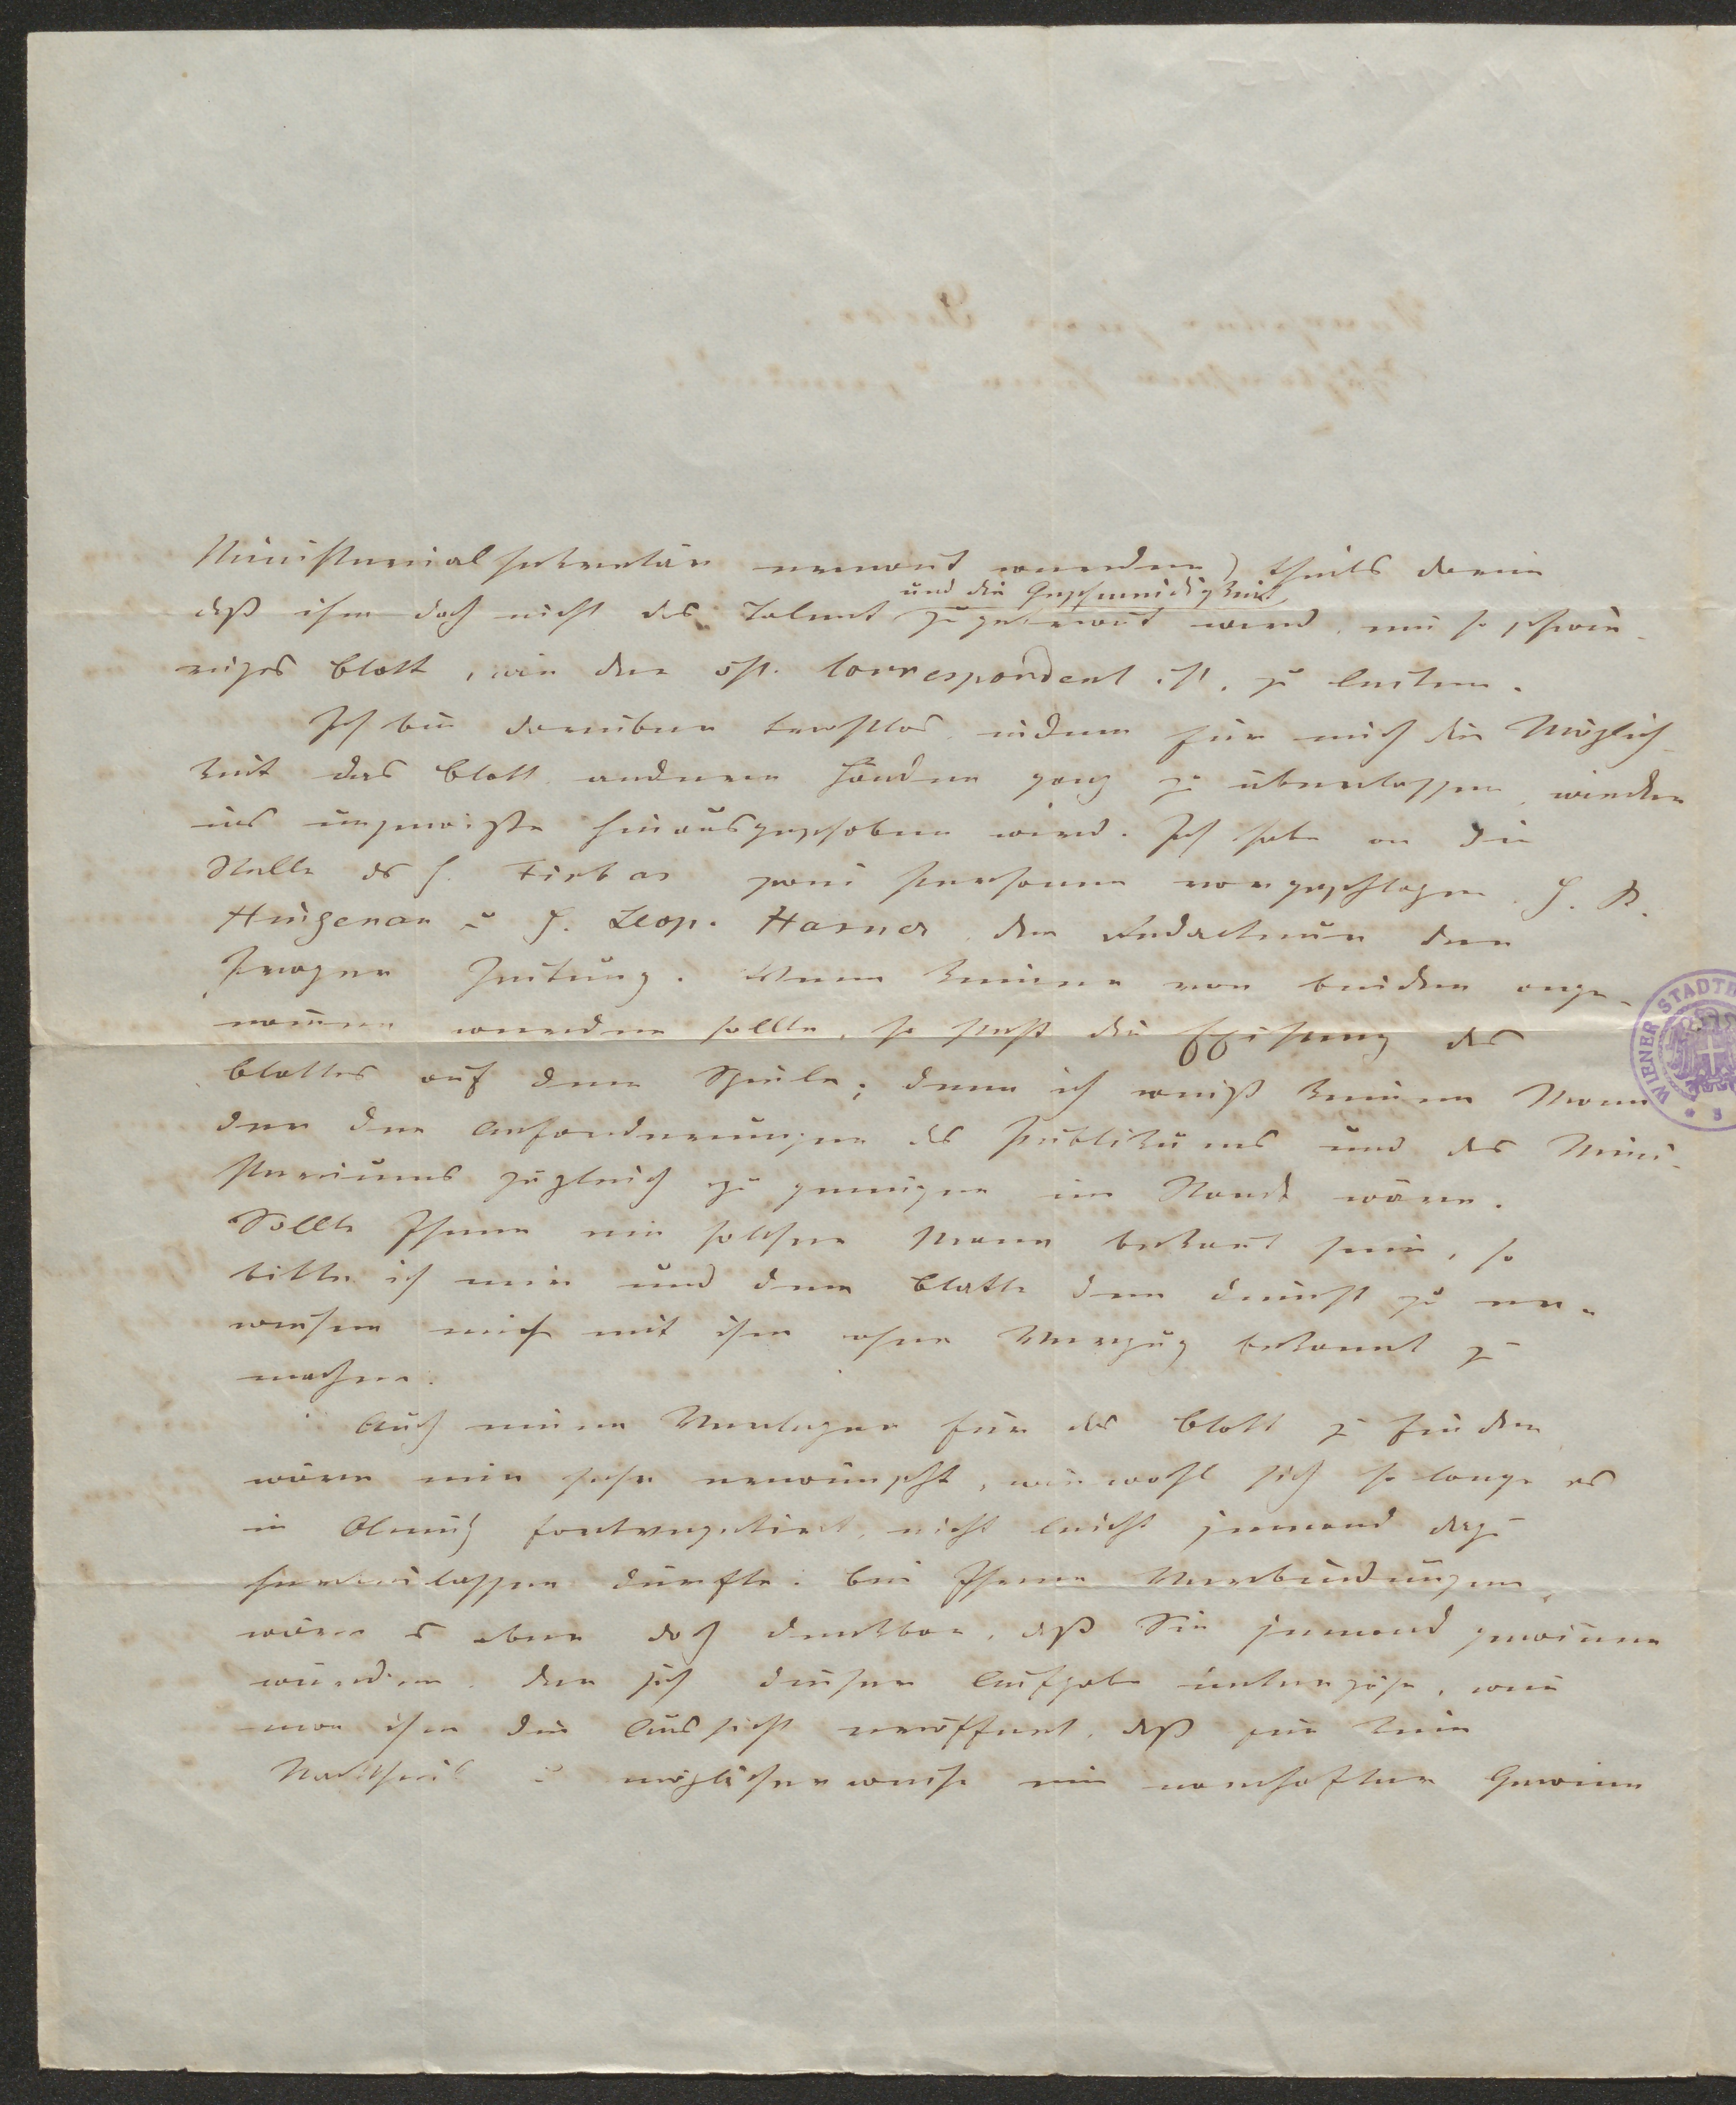 Ministerialsekretär ernant worden) theils darin
und die Geschmeidigkeit
daß ihm doch nicht das Talent zugetraut wird, ein so schwie-
riges Blatt, wie der öst. Correspondent ist, zu leiten.
Ich bin darüber trostlos, indem für mich die Möglich-
keit das Blatt anderen Händen ganz zu überlassen, wieder
ins ungewisse hinausgeschoben wird. Ich habe an die
Stelle des H. zwei Personen vorgeschlagen. H. B.
Hingenau u H. Leop. Hasner, den Redacteur der
Prager Zeitung. Wenn keiner von beiden ange-
nomen werden sollte, so steht die Existenz des
Blattes auf dem Spiele; denn ich weiß keinen Mann
der den Anforderungen des Publikums und des Mini-
steriums zugleich zu genügen im Stande wäre.
Sollte Ihnen ein solcher Mann bekant sein, so
bitte ich mir und dem Blatte den Dienst zu er-
weisen mich mit ihm ohne Verzug bekannt zu
machen.
Auch einen Verleger für das Blatt zu finden
wäre mir sehr erwünscht, wiewohl sich so lange es
in Olmüz fortvegetirt, nicht leicht jemand dazu
herbeilassen dürfte. Bei Ihren Verbindungen,
wäre es aber doch denkbar, daß Sie jemand gewinen
würden, der sich dieser Aufgabe unterzöge, wen
man ihm die Aussicht eröffnet, daß nie kein
Nachtheil u möglicherweise ein namhafter Gewinn
WIENER STADTB